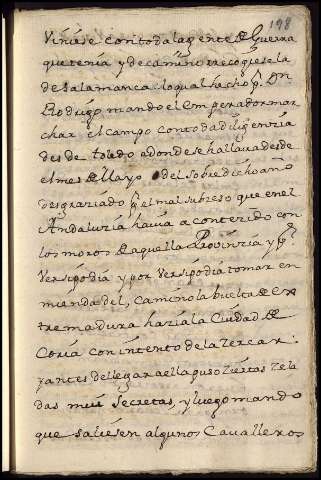 198
Viniese con toda la gente de Guerra
que tenia y de camino recogiese la
de Salamanca lo qual hecho pr. Dn
Rodrigo mando el Emperador mar
char el campo con toda diligenzia
desde toledo adonde se hallaua desde
el mes de Mayo del sobredicho año
desgraziado pr el mal subseso que en el
Andaluzia hauia acontezido con
los moros de aquella Provinzia y pr
Ver si podia y por Ver si podia tomar en
mienda del, camino la buelta de Ex
tremadura hazia la Ciudad de
Coria con intento de la zercar
y antes de llegar a ella puso ziertas zela
das mui Secretas, y luego mando
que saliesen algunos Cavalleros